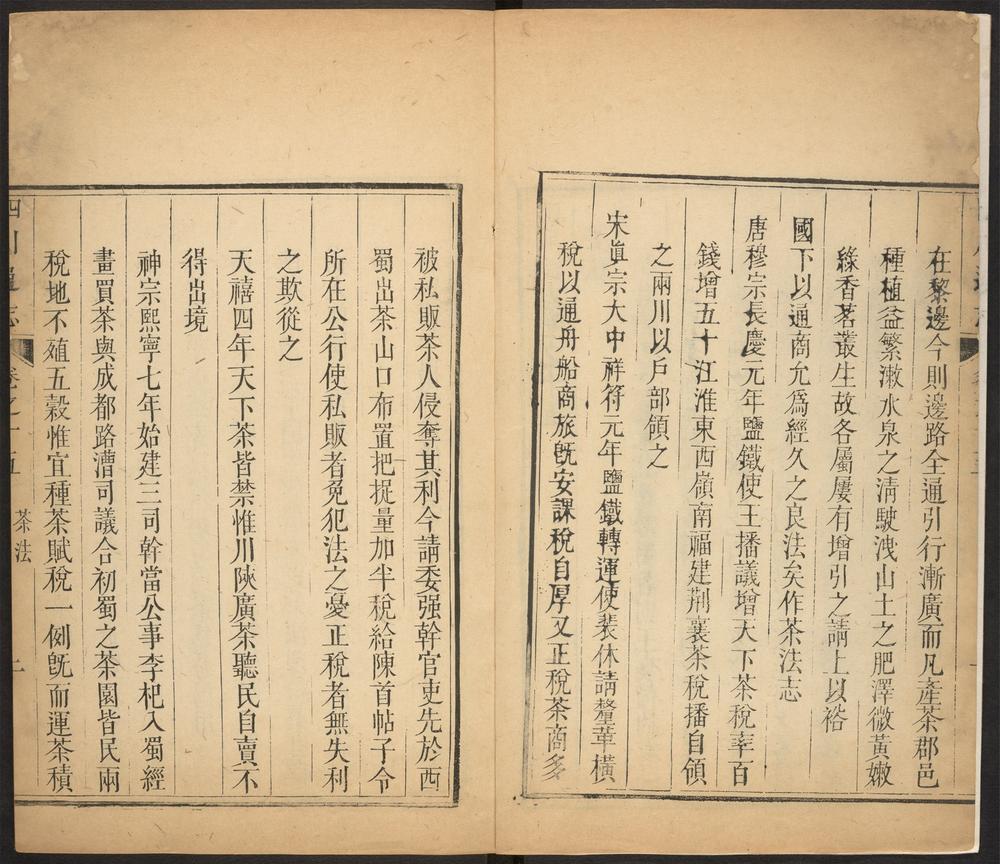 在黎邊今則邊路全通引行漸廣而凡產茶郡邑
種植益繁漱水泉之淸駛洩山土之肥澤微黃嫩
緣香茗叢生故各屬屢有增引之請上以裕
國下以通商允爲經久之良法矣作茶法志
唐穆宗長慶元年鹽鐵使王播議增天下茶稅率百
錢增五十江淮東西嶺南福建荆襄茶稅播自領
之兩川以戶部領之
宋眞宗大中祥符元年鹽鐵轉運使裴休請釐革橫
稅以通舟船商旅旣安課稅自厚又正稅茶商多
被私販茶人侵奪其利今請委强幹官吏先於西
蜀出茶山口布置把捉量加半稅給陳首帖子令
所在公行使私販者免犯法之憂正稅者無失利
之欺從之
天禧四年天下茶皆禁惟川陝廣茶聽民自賣不
得出境
神宗熙寧七年始建三司幹當公事李杞入蜀經
畫買茶與成都路漕司議合初蜀之茶園皆民兩
稅地不殖五穀惟宜種茶賦稅一例旣而運茶積
四川通志
卷之十五
茶法
二